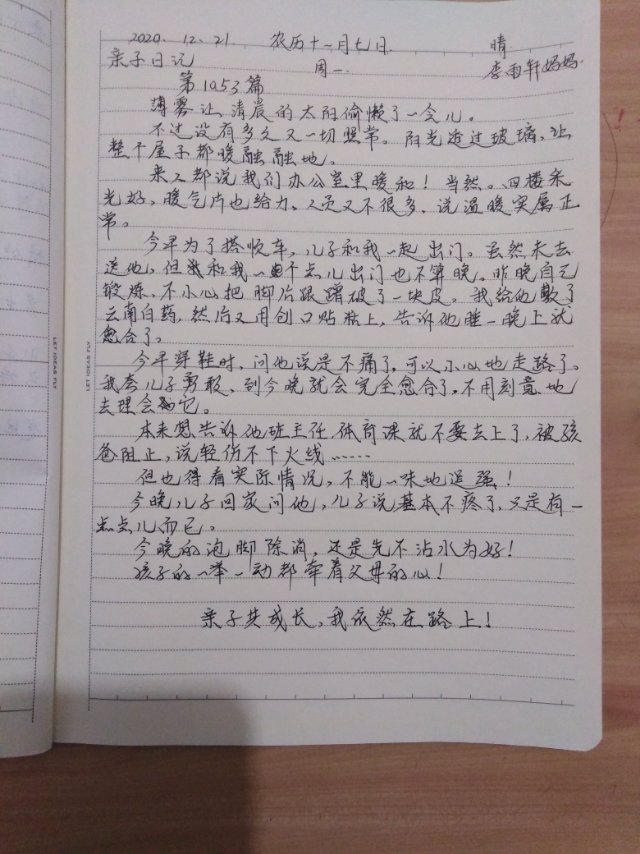 2020. 12. 21 农历十一月七日. 晴
亲子日记 周一. 李雨轩妈妈.
第1053篇
薄雾让清晨的太阳偷懒了一会儿。
不过没有多久又一切照常。阳光透过玻璃,让
整个屋子都暖融融地。
来人都说我们办公室里暖和!当然。四楼采
光好,暖气片也给力、人员又不很多,说温暖实属正
常。
今早为了搭顺车,儿子和我一起出门。虽然未去
送他,但我和我一起早点儿出门也不算晚。昨晚自己
锻炼,不小心把脚后跟蹭破了一块皮。我给他敷了
云南白药,然后又用创口贴粘上,告诉他睡一晚上就
愈合了。
今早穿鞋时,问他说是不痛了,可以小心地走路了。
我夸儿子勇敢、到今晚就会完全愈合了,不用刻意地
去理会它。
本来想告诉他班主任体育课就不要去上了,被孩
爸阻止,说轻伤不下火线……
但也得看实际情况,不能一味地逞强!
今晚儿子回家问他,儿子说基本不疼了,只是有一
点点儿而已。
今晚的泡脚除消,还是先不沾水为好!
孩子的一举一动都牵着父母的心!
亲子共成长,我依然在路上!
LET IDEAS FLY